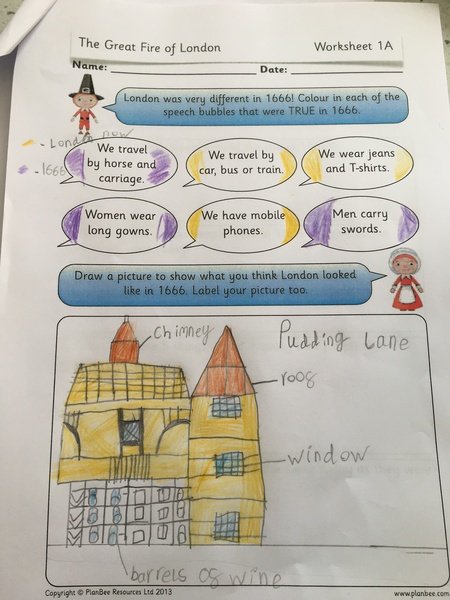 The Great Fire of London Worksheet 1A
Name: Date:
London was very different in 1666! Colour in each of the
speech bubbles that were TRUE in 1666.
- London now
- 1666
We travel
by horse and
carriage.
We travel by
car, bus or train.
We wear jeans
and T-shirts.
Women wear
long gowns.
We have mobile
phones.
Men carry
swords.
Draw a picture to show what you think London looked
like in 1666. Label your picture too.
chimney
Pudding Lane
roof
window
barrels of wine
Copyright © PlanBee Resources Ltd 2013 www.planbee.com